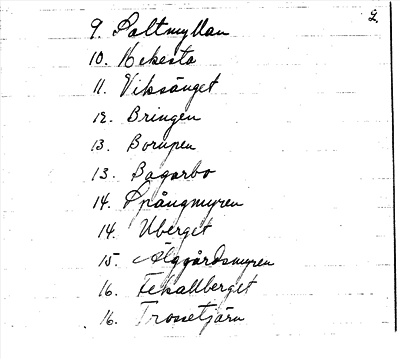 2
9. Saltmyllan
10. Kekesta
11. Viksänget
12. Bringen
13. Borupen
13. Bagarbo
14. Spångmyren
14. Uberget
15 Älggårdsmyren
16. Fekallberget
16. Trossetjärn